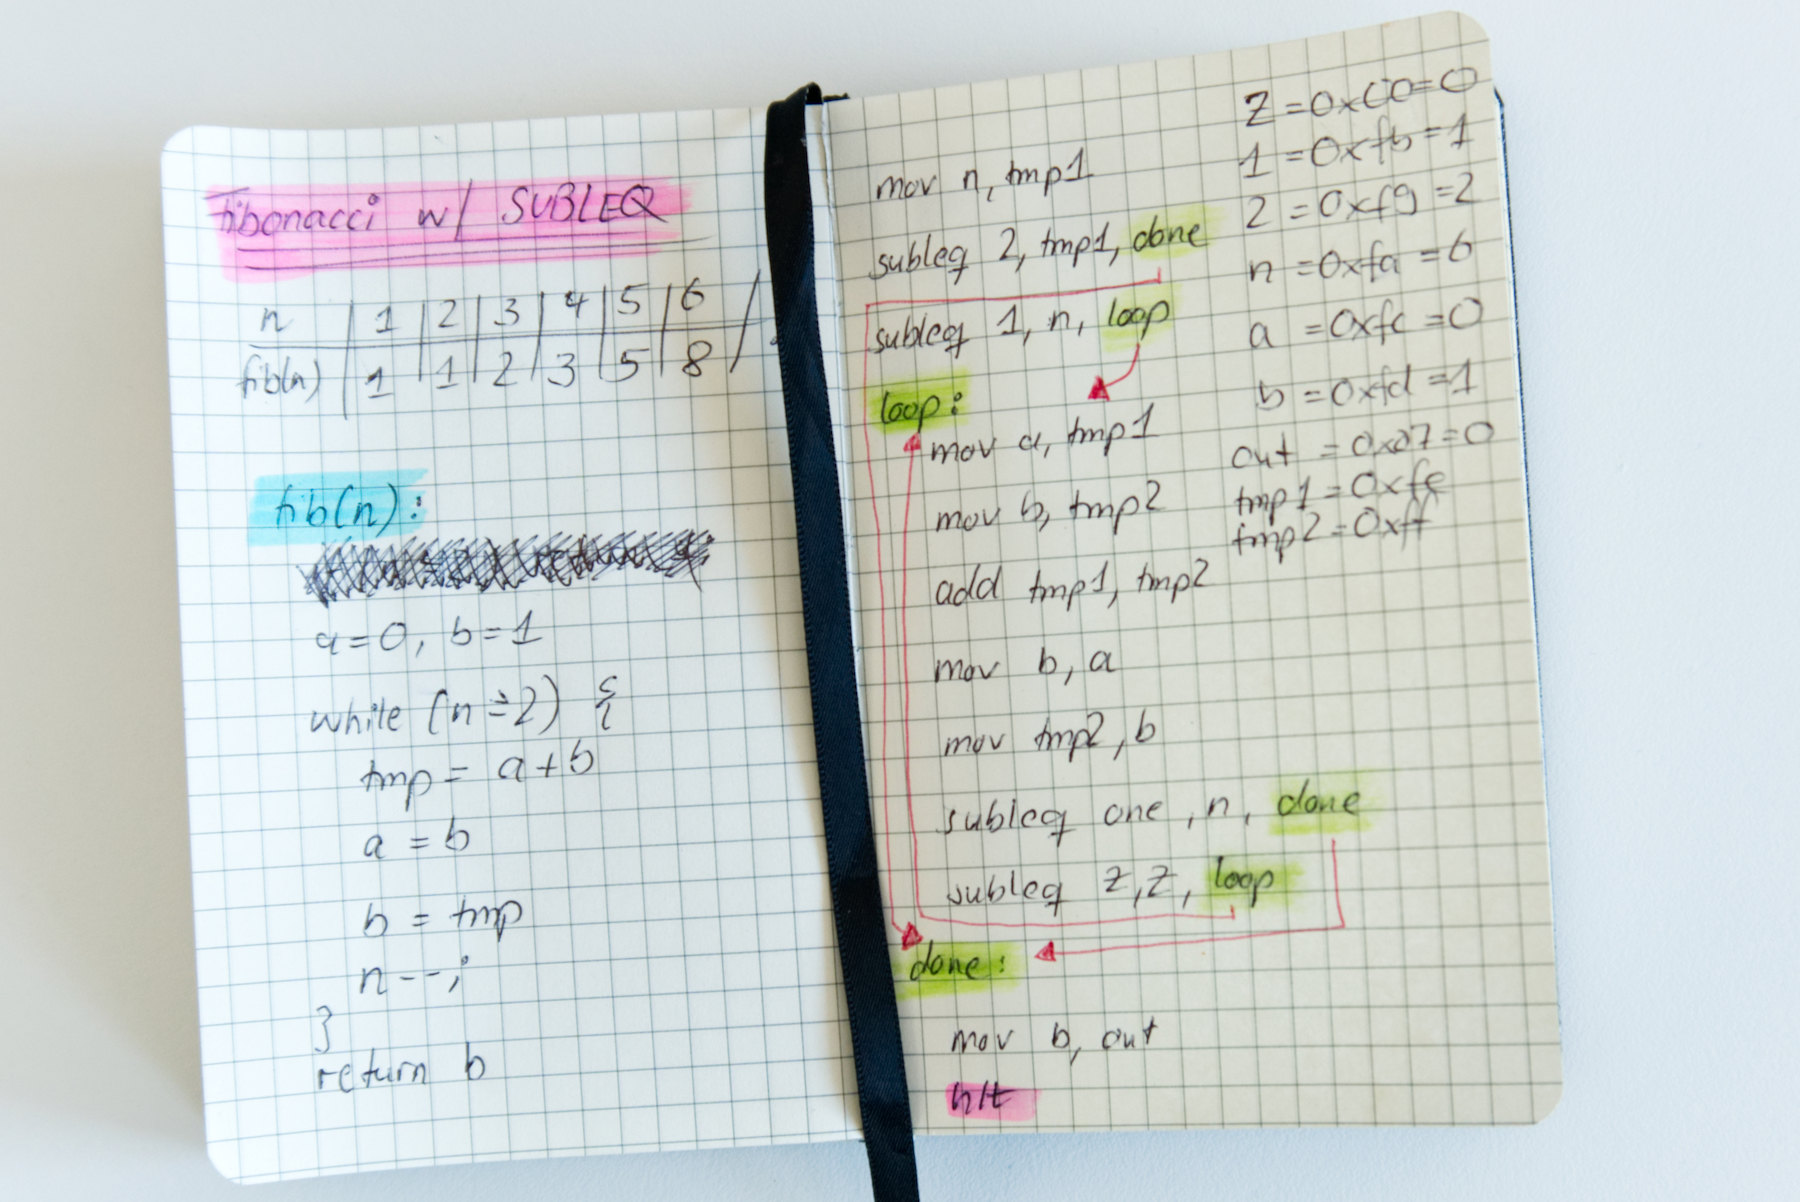 fibonacci w/ SUBLEQ
n | 1 | 2 | 3 | 4 | 5 | 6 /
fib(n) | 1 | 1 | 2 | 3 | 5 | 8 /
fib(n):
a=0, b=1
while (n ≥2) {
tmp = a+b
a = b
b = tmp
n--;
}
return b
mov n, tmp1
subleq 2, tmp1, done
subleq 1, n, loop
loop:
mov a, tmp1
mov b, tmp2
add tmp1, tmp2
mov b, a
mov tmp2, b
subleq one, n, done
subleq Z, Z, loop
done:
mov b, out
hlt
Z =0x00=0
1 =0xfb=1
2 =0xf9=2
n =0xfa=6
a =0xfc=0
b =0xfd=1
out =0x07=0
tmp1=0xfe
tmp2=0xff